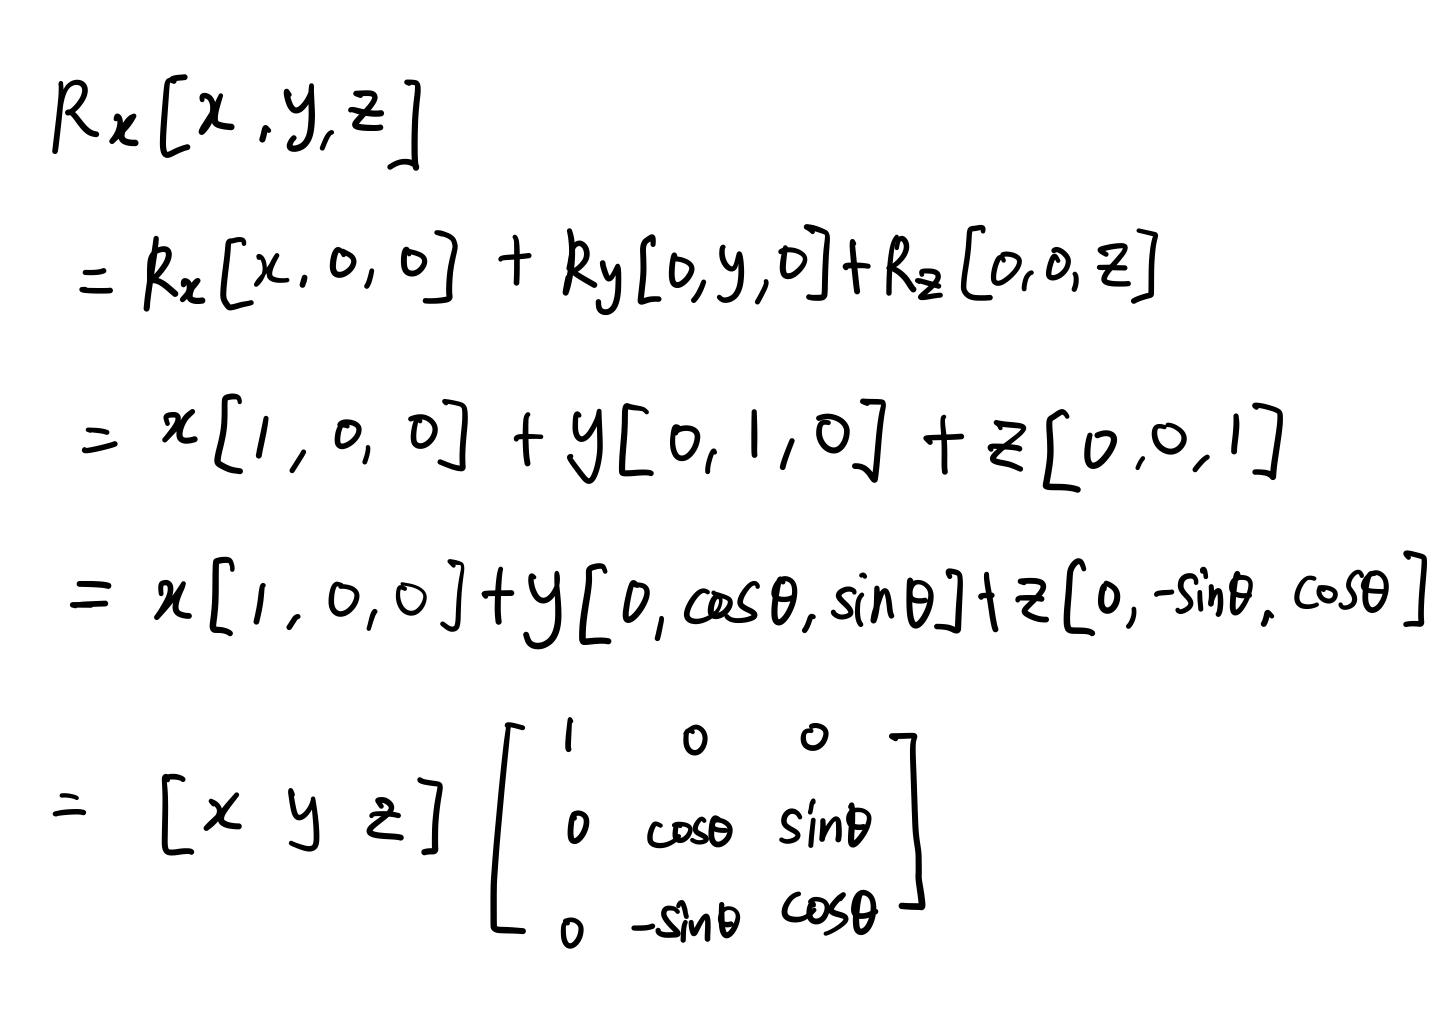 Rx[x, y, z]
= Rx[x, 0, 0] + Ry[0, y, 0] + Rz[0, 0, z]
= x[1, 0, 0] + y[0, 1, 0] + z[0, 0, 1]
= x[1, 0, 0] + y[0, cosθ, sinθ] + z[0, -sinθ, cosθ]
= [x y z] [1 0 0
0 cosθ sinθ
0 -sinθ cosθ]